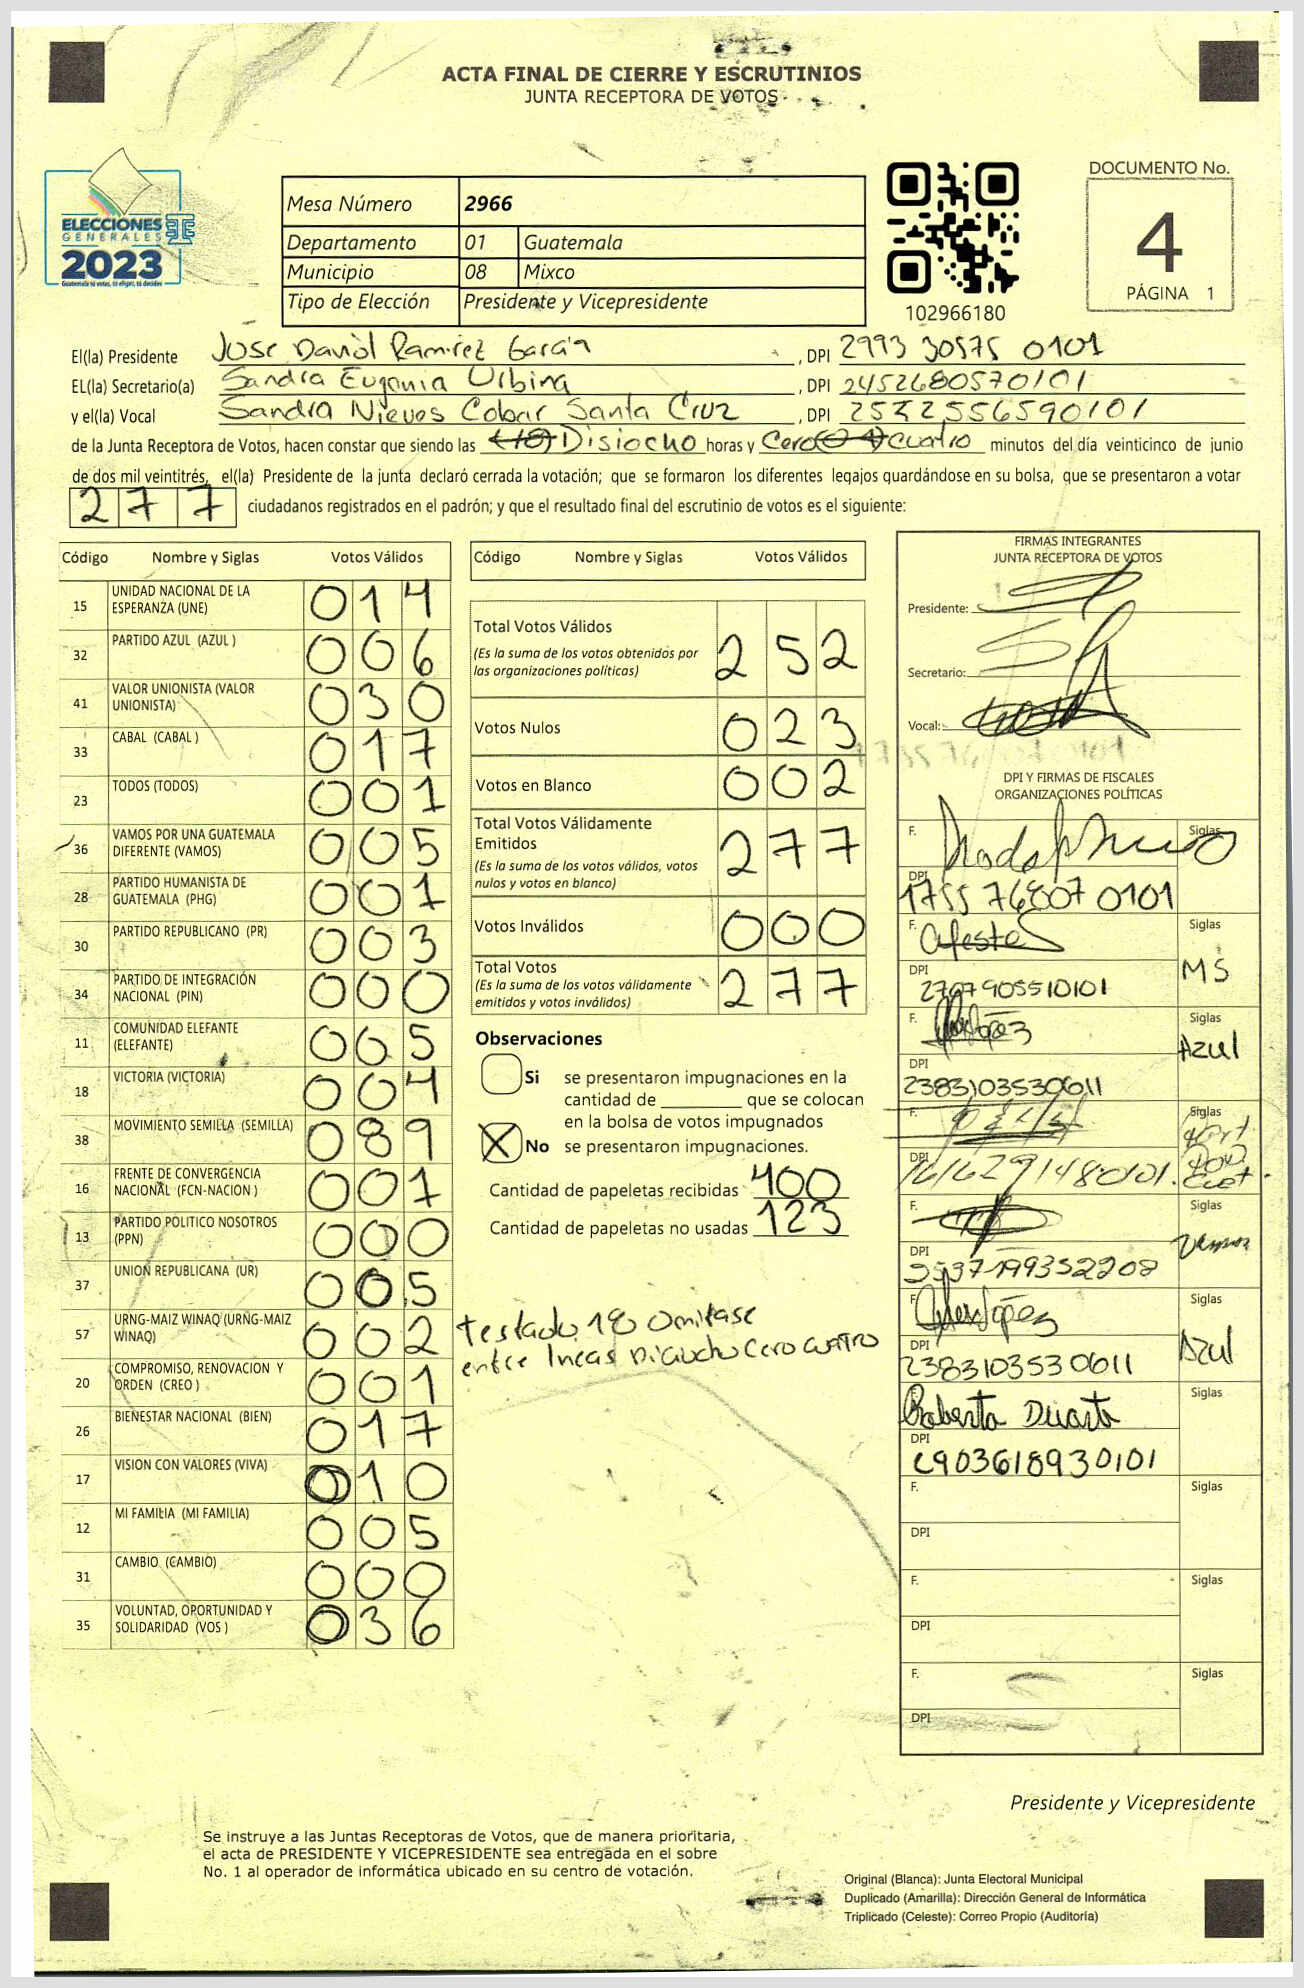 ACTA FINAL DE CIERRE Y ESCRUTINIOS
JUNTA RECEPTORA DE VOTOS
ELECCIONES
GENERALES
2023
Guatemala tú votas, tú eliges, tú decides
Mesa Número 2966
Departamento 01 Guatemala
Municipio 08 Mixco
Tipo de Elección Presidente y Vicepresidente
102966180
DOCUMENTO No.
4
PÁGINA 1
El(la) Presidente Jose David Ramirez Garcia, DPI 2993 30575 0101
EL(la) Secretario(a) Sandra Eugenia Urbina, DPI 2452680570101
y el(la) Vocal Sandra Nieves Cobar Santa Cruz, DPI 2522556590101
de la Junta Receptora de Votos, hacen constar que siendo las (18) Disiocho horas y Cero (04) cuatro minutos del día veinticinco de junio
de dos mil veintitrés, el(la) Presidente de la junta declaró cerrada la votación; que se formaron los diferentes legajos guardándose en su bolsa, que se presentaron a votar
277 ciudadanos registrados en el padrón; y que el resultado final del escrutinio de votos es el siguiente:
Código Nombre y Siglas Votos Válidos
15 UNIDAD NACIONAL DE LA ESPERANZA (UNE) 014
32 PARTIDO AZUL (AZUL ) 006
41 VALOR UNIONISTA (VALOR UNIONISTA) 030
33 CABAL (CABAL ) 017
23 TODOS (TODOS) 001
36 VAMOS POR UNA GUATEMALA DIFERENTE (VAMOS) 005
28 PARTIDO HUMANISTA DE GUATEMALA (PHG) 001
30 PARTIDO REPUBLICANO (PR) 003
34 PARTIDO DE INTEGRACIÓN NACIONAL (PIN) 000
11 COMUNIDAD ELEFANTE (ELEFANTE) 005
18 VICTORIA (VICTORIA) 004
38 MOVIMIENTO SEMILLA (SEMILLA) 089
16 FRENTE DE CONVERGENCIA NACIONAL (FCN-NACION ) 001
13 PARTIDO POLITICO NOSOTROS (PPN) 000
37 UNION REPUBLICANA (UR) 005
57 URNG-MAIZ WINAQ (URNG-MAIZ WINAQ) 002
20 COMPROMISO, RENOVACION Y ORDEN (CREO ) 001
26 BIENESTAR NACIONAL (BIEN) 017
17 VISION CON VALORES (VIVA) 010
12 MI FAMILIA (MI FAMILIA) 005
31 CAMBIO (CAMBIO) 000
35 VOLUNTAD, OPORTUNIDAD Y SOLIDARIDAD (VOS ) 036
Código Nombre y Siglas Votos Válidos
Total Votos Válidos 252
(Es la suma de los votos obtenidos por
las organizaciones políticas)
Votos Nulos 023
Votos en Blanco 002
Total Votos Válidamente
Emitidos 277
(Es la suma de los votos válidos, votos
nulos y votos en blanco)
Votos Inválidos 000
Total Votos 277
(Es la suma de los votos válidamente
emitidos y votos inválidos)
Observaciones
Si se presentaron impugnaciones en la
cantidad de ________ que se colocan
en la bolsa de votos impugnados
X No se presentaron impugnaciones.
Cantidad de papeletas recibidas 400
Cantidad de papeletas no usadas 123
testado 18 Omitase
entre lineas Diciocho Cero cuatro
FIRMAS INTEGRANTES
JUNTA RECEPTORA DE VOTOS
Presidente:
Secretario:
Vocal:
DPI Y FIRMAS DE FISCALES
ORGANIZACIONES POLÍTICAS
F. Siglas
DPI 1755 76807 0101
F. Siglas MS
DPI 2707905510101
F. Siglas Azul
DPI 2383103530611
F. Siglas
DPI 1616291480101
F. Siglas Vamos
DPI 5537199352208
F. Alex López Siglas Azul
DPI 2383103530611
F. Roberta Duarte Siglas
DPI 2903618930101
F. Siglas
DPI
F. Siglas
DPI
F. Siglas
DPI
Presidente y Vicepresidente
Se instruye a las Juntas Receptoras de Votos, que de manera prioritaria,
el acta de PRESIDENTE Y VICEPRESIDENTE sea entregada en el sobre
No. 1 al operador de informática ubicado en su centro de votación.
Original (Blanca): Junta Electoral Municipal
Duplicado (Amarilla): Dirección General de Informática
Triplicado (Celeste): Correo Propio (Auditoría)